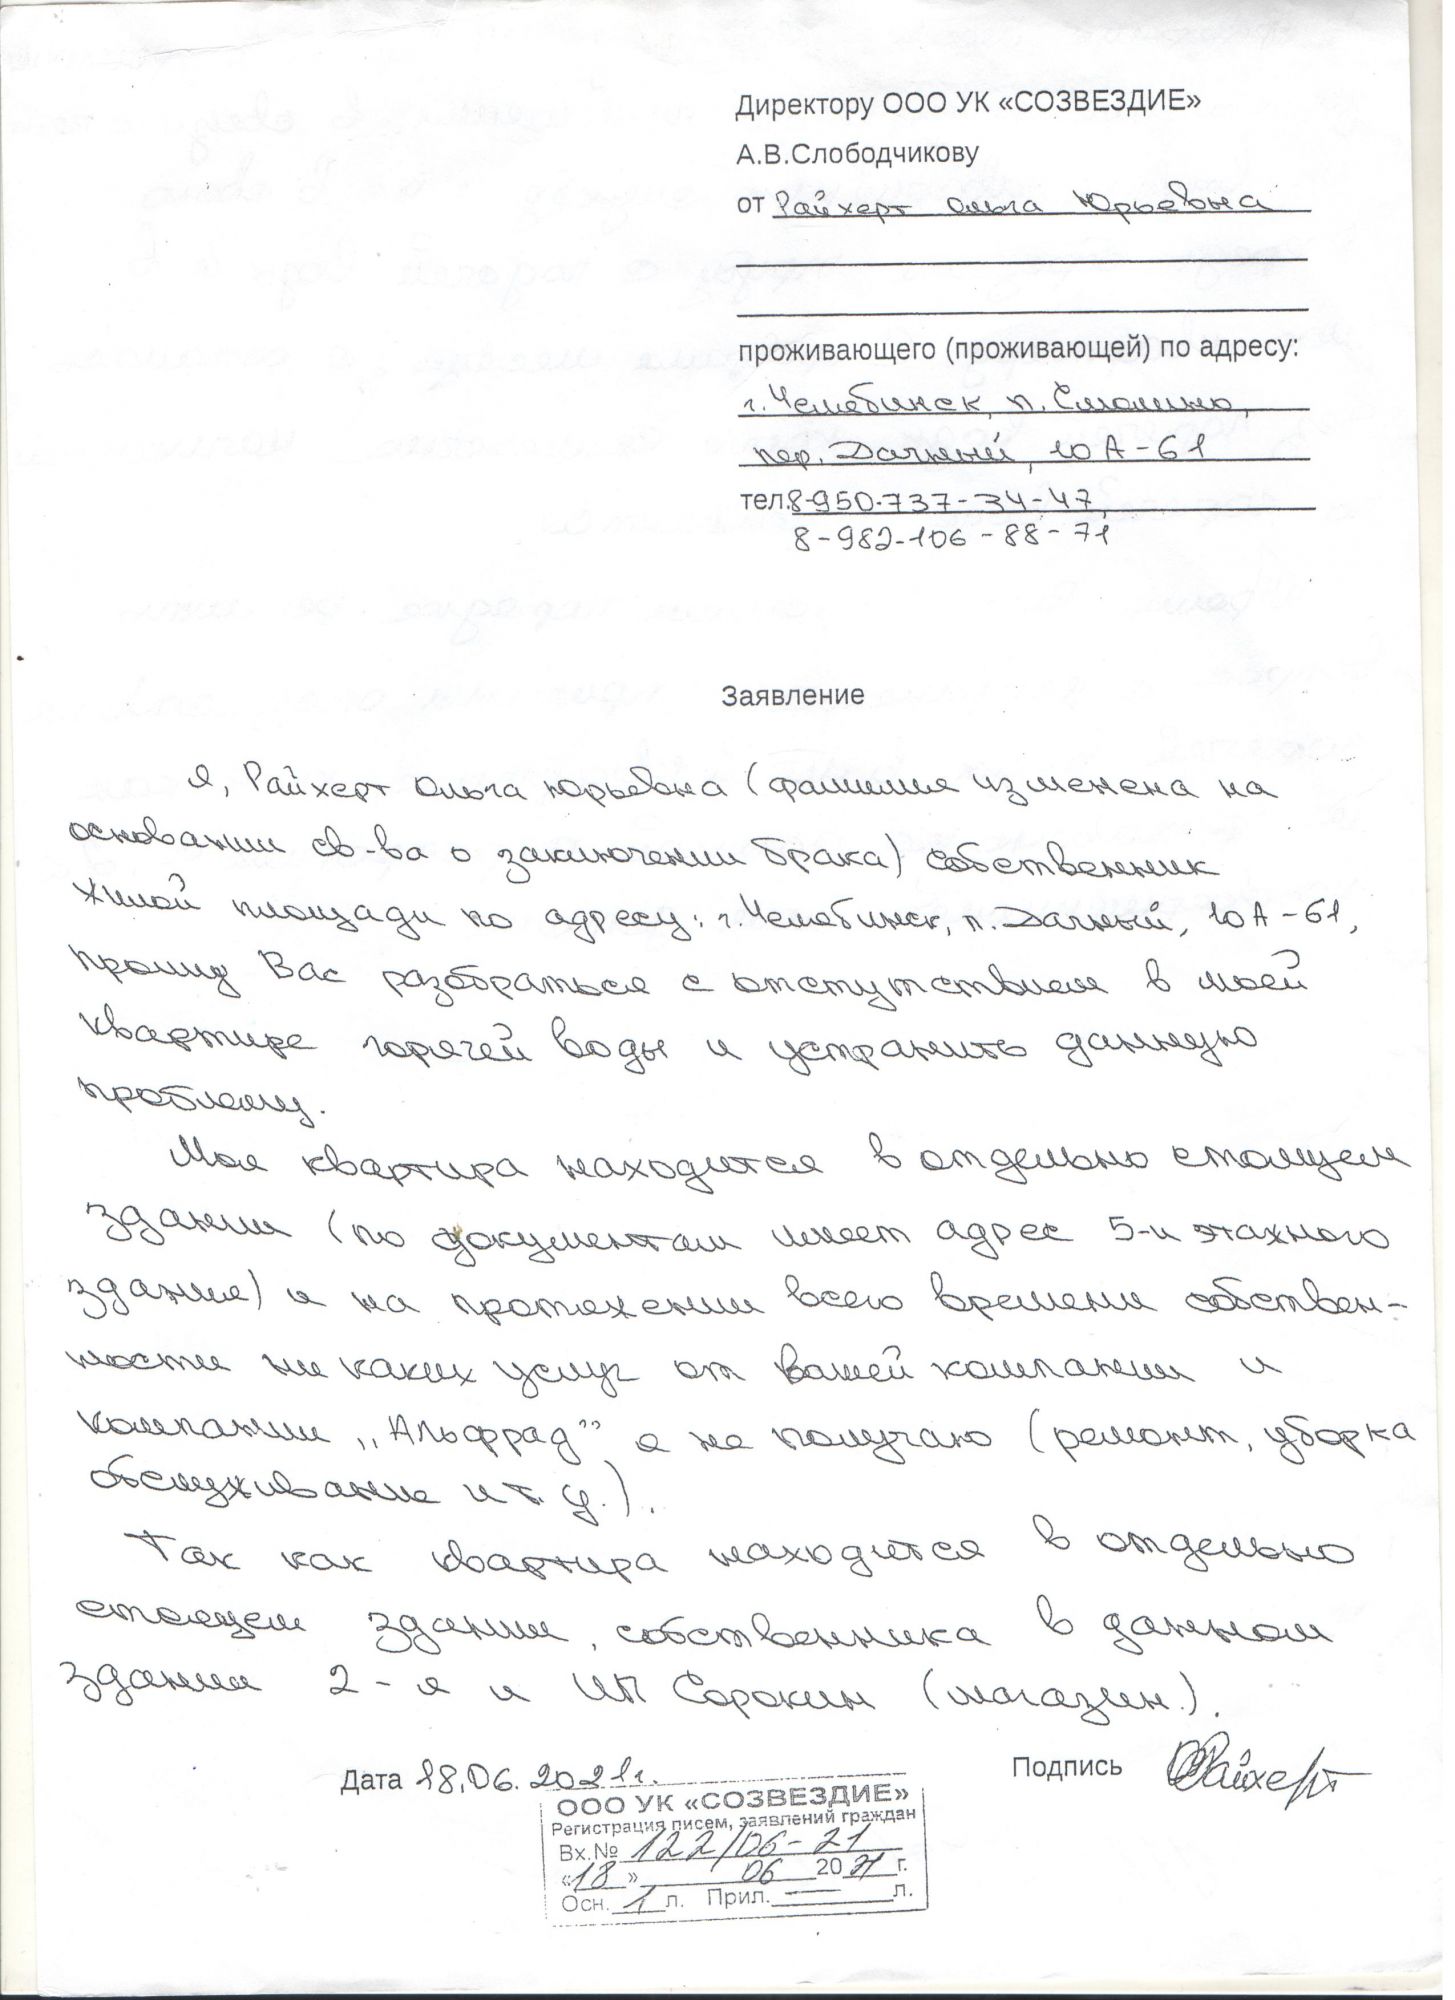 Директору ООО УК «СОЗВЕЗДИЕ»
А.В.Слободчикову
от Райхерт Ольга Юрьевна
проживающего (проживающей) по адресу:
г. Челябинск, п. Смолино,
пер. Дачный, 10 А - 61
тел. 8-950-737-34-47,
8-982-106-88-71
Заявление
Я, Райхерт Ольга Юрьевна (фамилия изменена на
основании св-ва о заключении брака) собственник
жилой площади по адресу: г. Челябинск, п. Дачный, 10 А - 61,
прошу Вас разобраться с отстутствием в моей
квартире горячей воды и устранить данную
проблему.
Моя квартира находится в отдельно стоящем
здании (по документам имеет адрес 5-и этажного
здания) и на протяжении всего времени собствен-
ности ни каких услуг от вашей компании и
компании „Альфрад" я не получаю (ремонт, уборка
обслуживание и т. д.).
Так как квартира находится в отдельно
стоящем здании, собственника в данном
здании 2 - я и ИП Сорокин (магазин.).
Дата 18.06.2021г. Подпись Райхерт
ООО УК «СОЗВЕЗДИЕ»
Регистрация писем, заявлений граждан
Вх.№ 122/06-21
«18» 06 2021 г.
Осн. 1 л. Прил. — л.